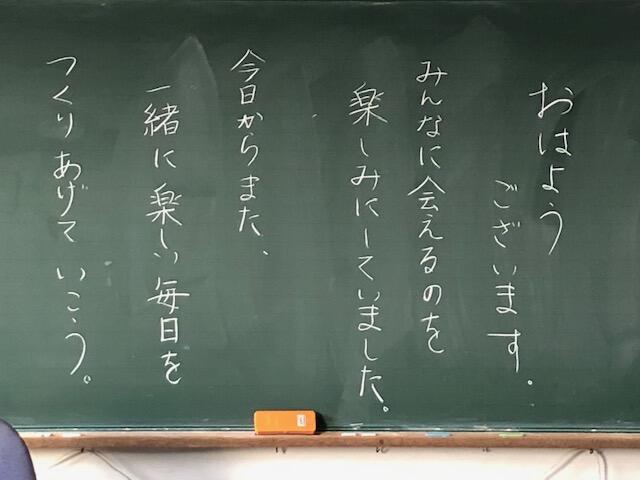 おはよう
ございます。
みんなに会えるのを
楽しみにしていました。
今日からまた、
一緒に楽しい毎日を
つくりあげていこう。